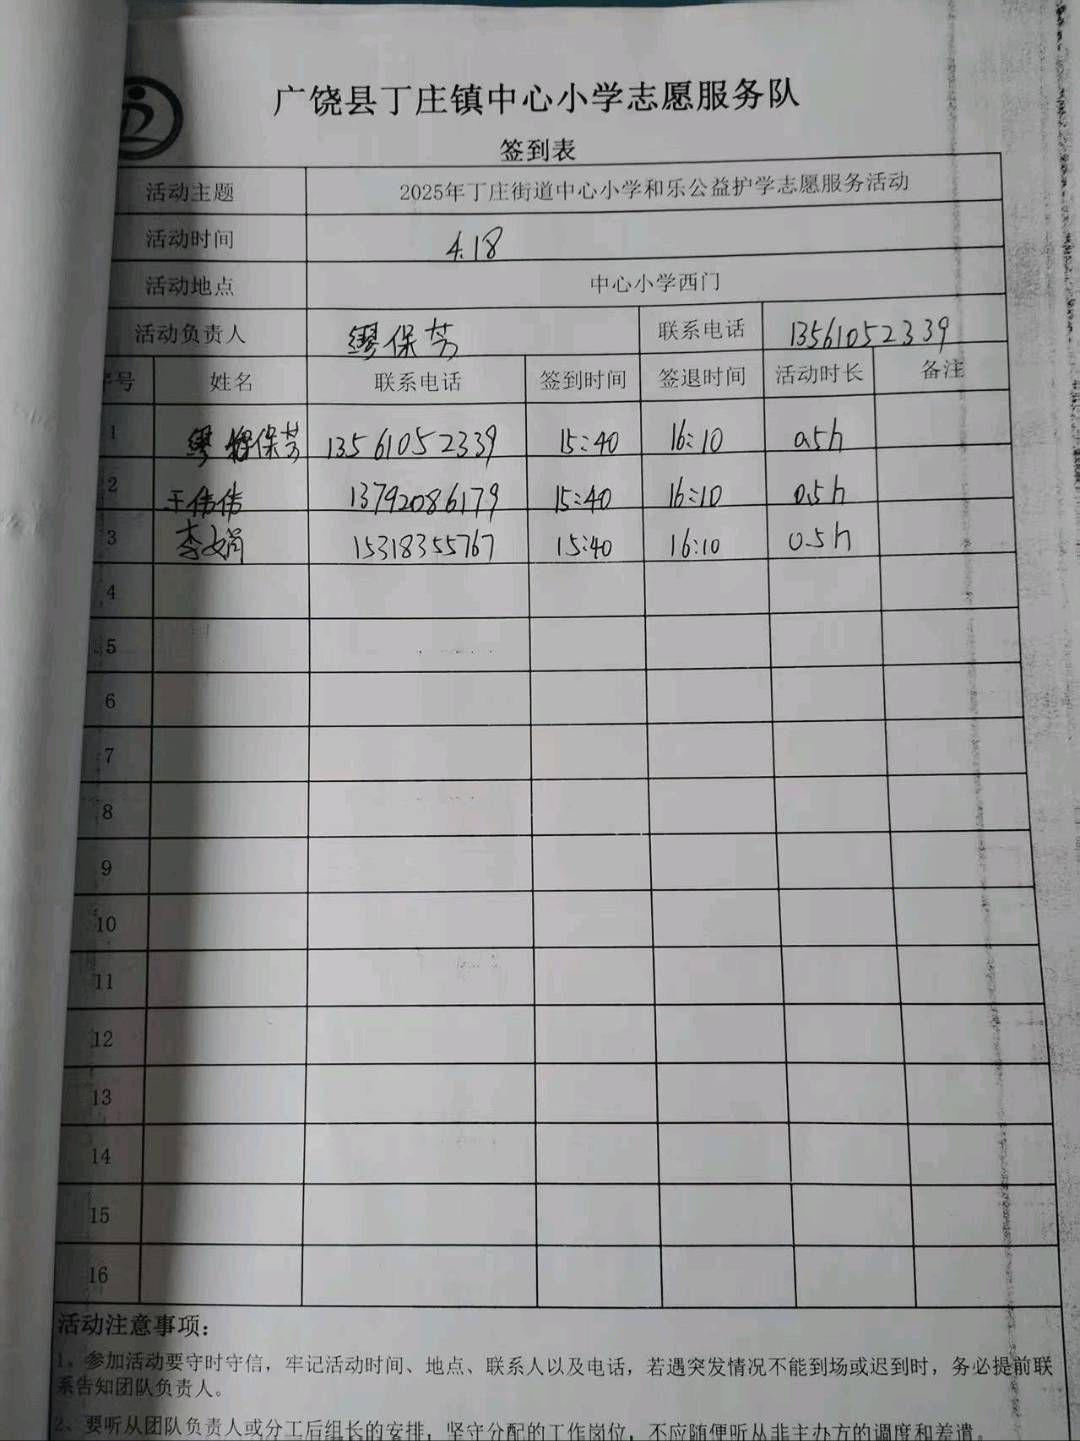 广饶县丁庄镇中心小学志愿服务队
签到表
活动主题 2025年丁庄街道中心小学和乐公益护学志愿服务活动
活动时间 4.18
活动地点 中心小学西门
活动负责人 缪保芳 联系电话 13561052339
序号 姓名 联系电话 签到时间 签退时间 活动时长 备注
1 缪保芳 13561052339 15:40 16:10 0.5h
2 王伟伟 13792086179 15:40 16:10 0.5h
3 李文娟 15318355767 15:40 16:10 0.5h
4
5
6
7
8
9
10
11
12
13
14
15
16
活动注意事项:
1、参加活动要守时守信，牢记活动时间、地点、联系人以及电话，若遇突发情况不能到场或迟到时，务必提前联
系告知团队负责人。
2、要听从团队负责人或分工后组长的安排，坚守分配的工作岗位，不应随便听从非主办方的调度和差遣。